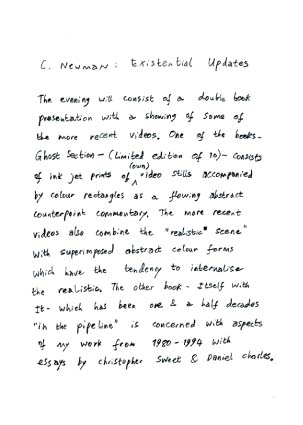 C. Newman: Existential Updates
The evening will consist of a double book
presentation with a showing of some of
the more recent videos. One of the books -
Ghost Section - (limited edition of 10) - consists
(own)
of ink jet prints of video stills accompanied
by colour rectangles as a flowing abstract
counterpoint commentary. The more recent
videos also combine the "realistic" scene
with superimposed abstract colour forms
which have the tendency to internalise
the realistic. The other book - Itself with
It - which has been one & a half decades
"in the pipeline" is concerned with aspects
of my work from 1980 - 1994 with
essays by christopher Sweet & Daniel charles.